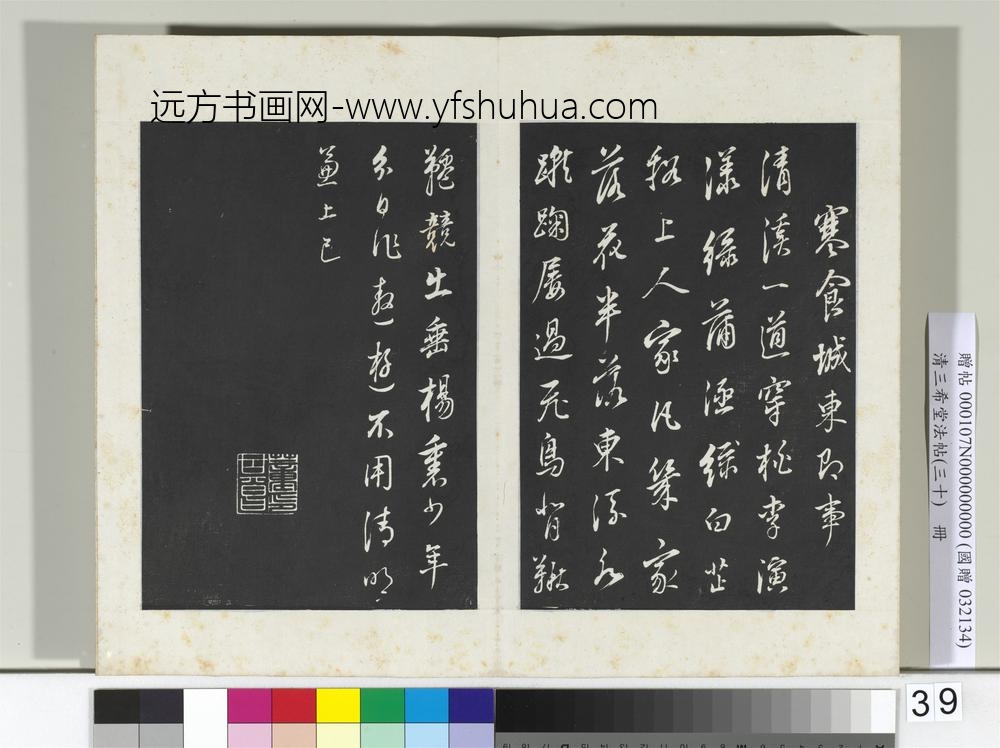 远方书画网-www.yfshuhua.com
寒食城東即事
清溪一道穿桃李演
漾綠蒲涵綠白芷
谿上人家凡幾家
落花半落東流水
蹴踘屢過飛鳥背鞦
韆競出垂楊裏少年
分日作遨遊不用清明
兼上巳
贈帖 000107N000000000 (國贈 032134)
清三希堂法帖(三十) 冊
39